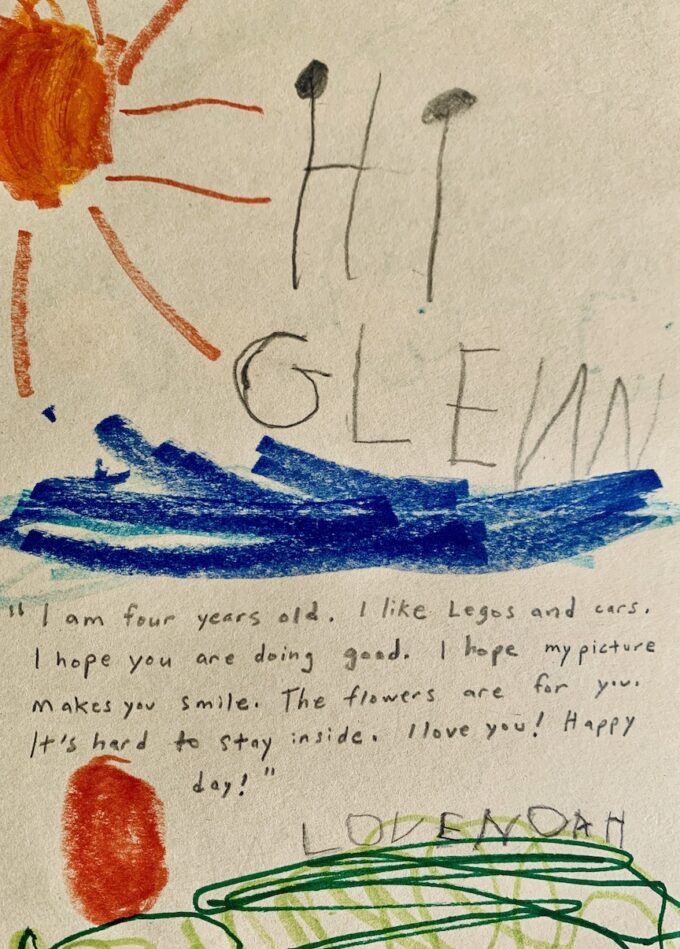 HI
GLENN
"I am four years old. I like Legos and cars.
I hope you are doing good. I hope my picture
makes you smile. The flowers are for you.
It's hard to stay inside. I love you! Happy
day!"
LOVE NOAH